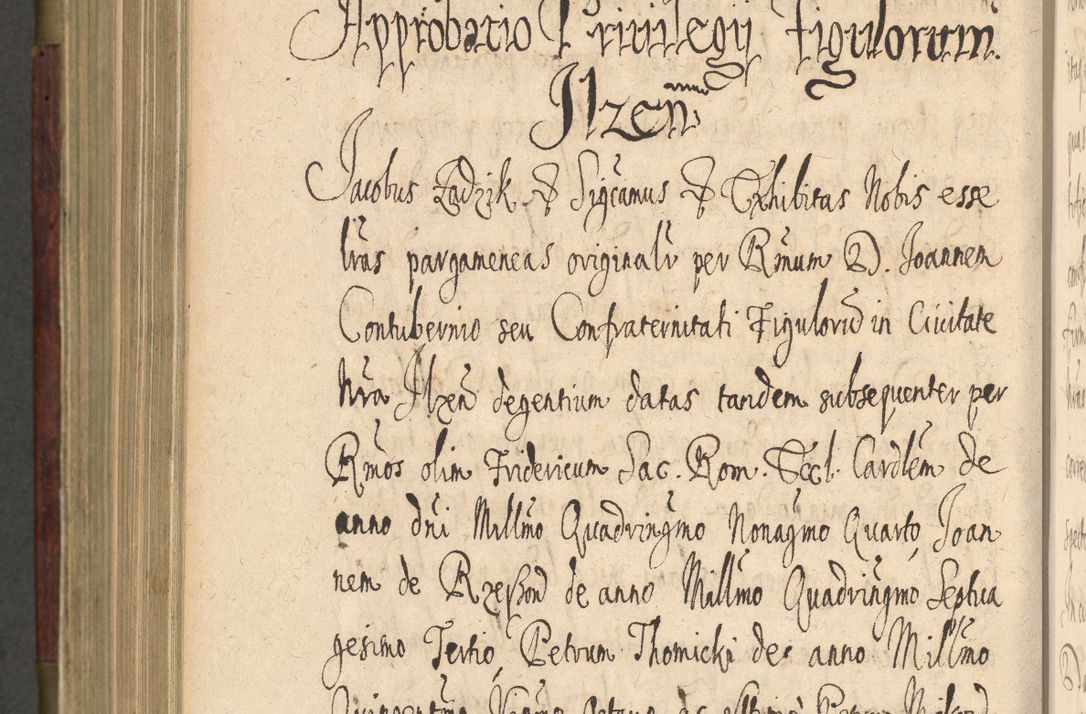 Approbatio Privilegij Figulorum
Ilzen.
Jacobus Zadzik & Sigcamus & Exhibitas Nobis esse
lras pargameneas originalr per Rmum D. Joannem
Contubernio seu Confraternitati Figuloru in Civitate
Nra Ilzen degentium datas tandem subsequenter per
Rmos olim Fridericum Sac. Rom. Eccl. Cardlem de
anno dni Millmo Quadringmo Nonagmo Quarto, Joan
nem de Rzeszow de anno Millmo Quadringmo Septua
gesimo Tertio, Petrum Thomicki de anno Millmo